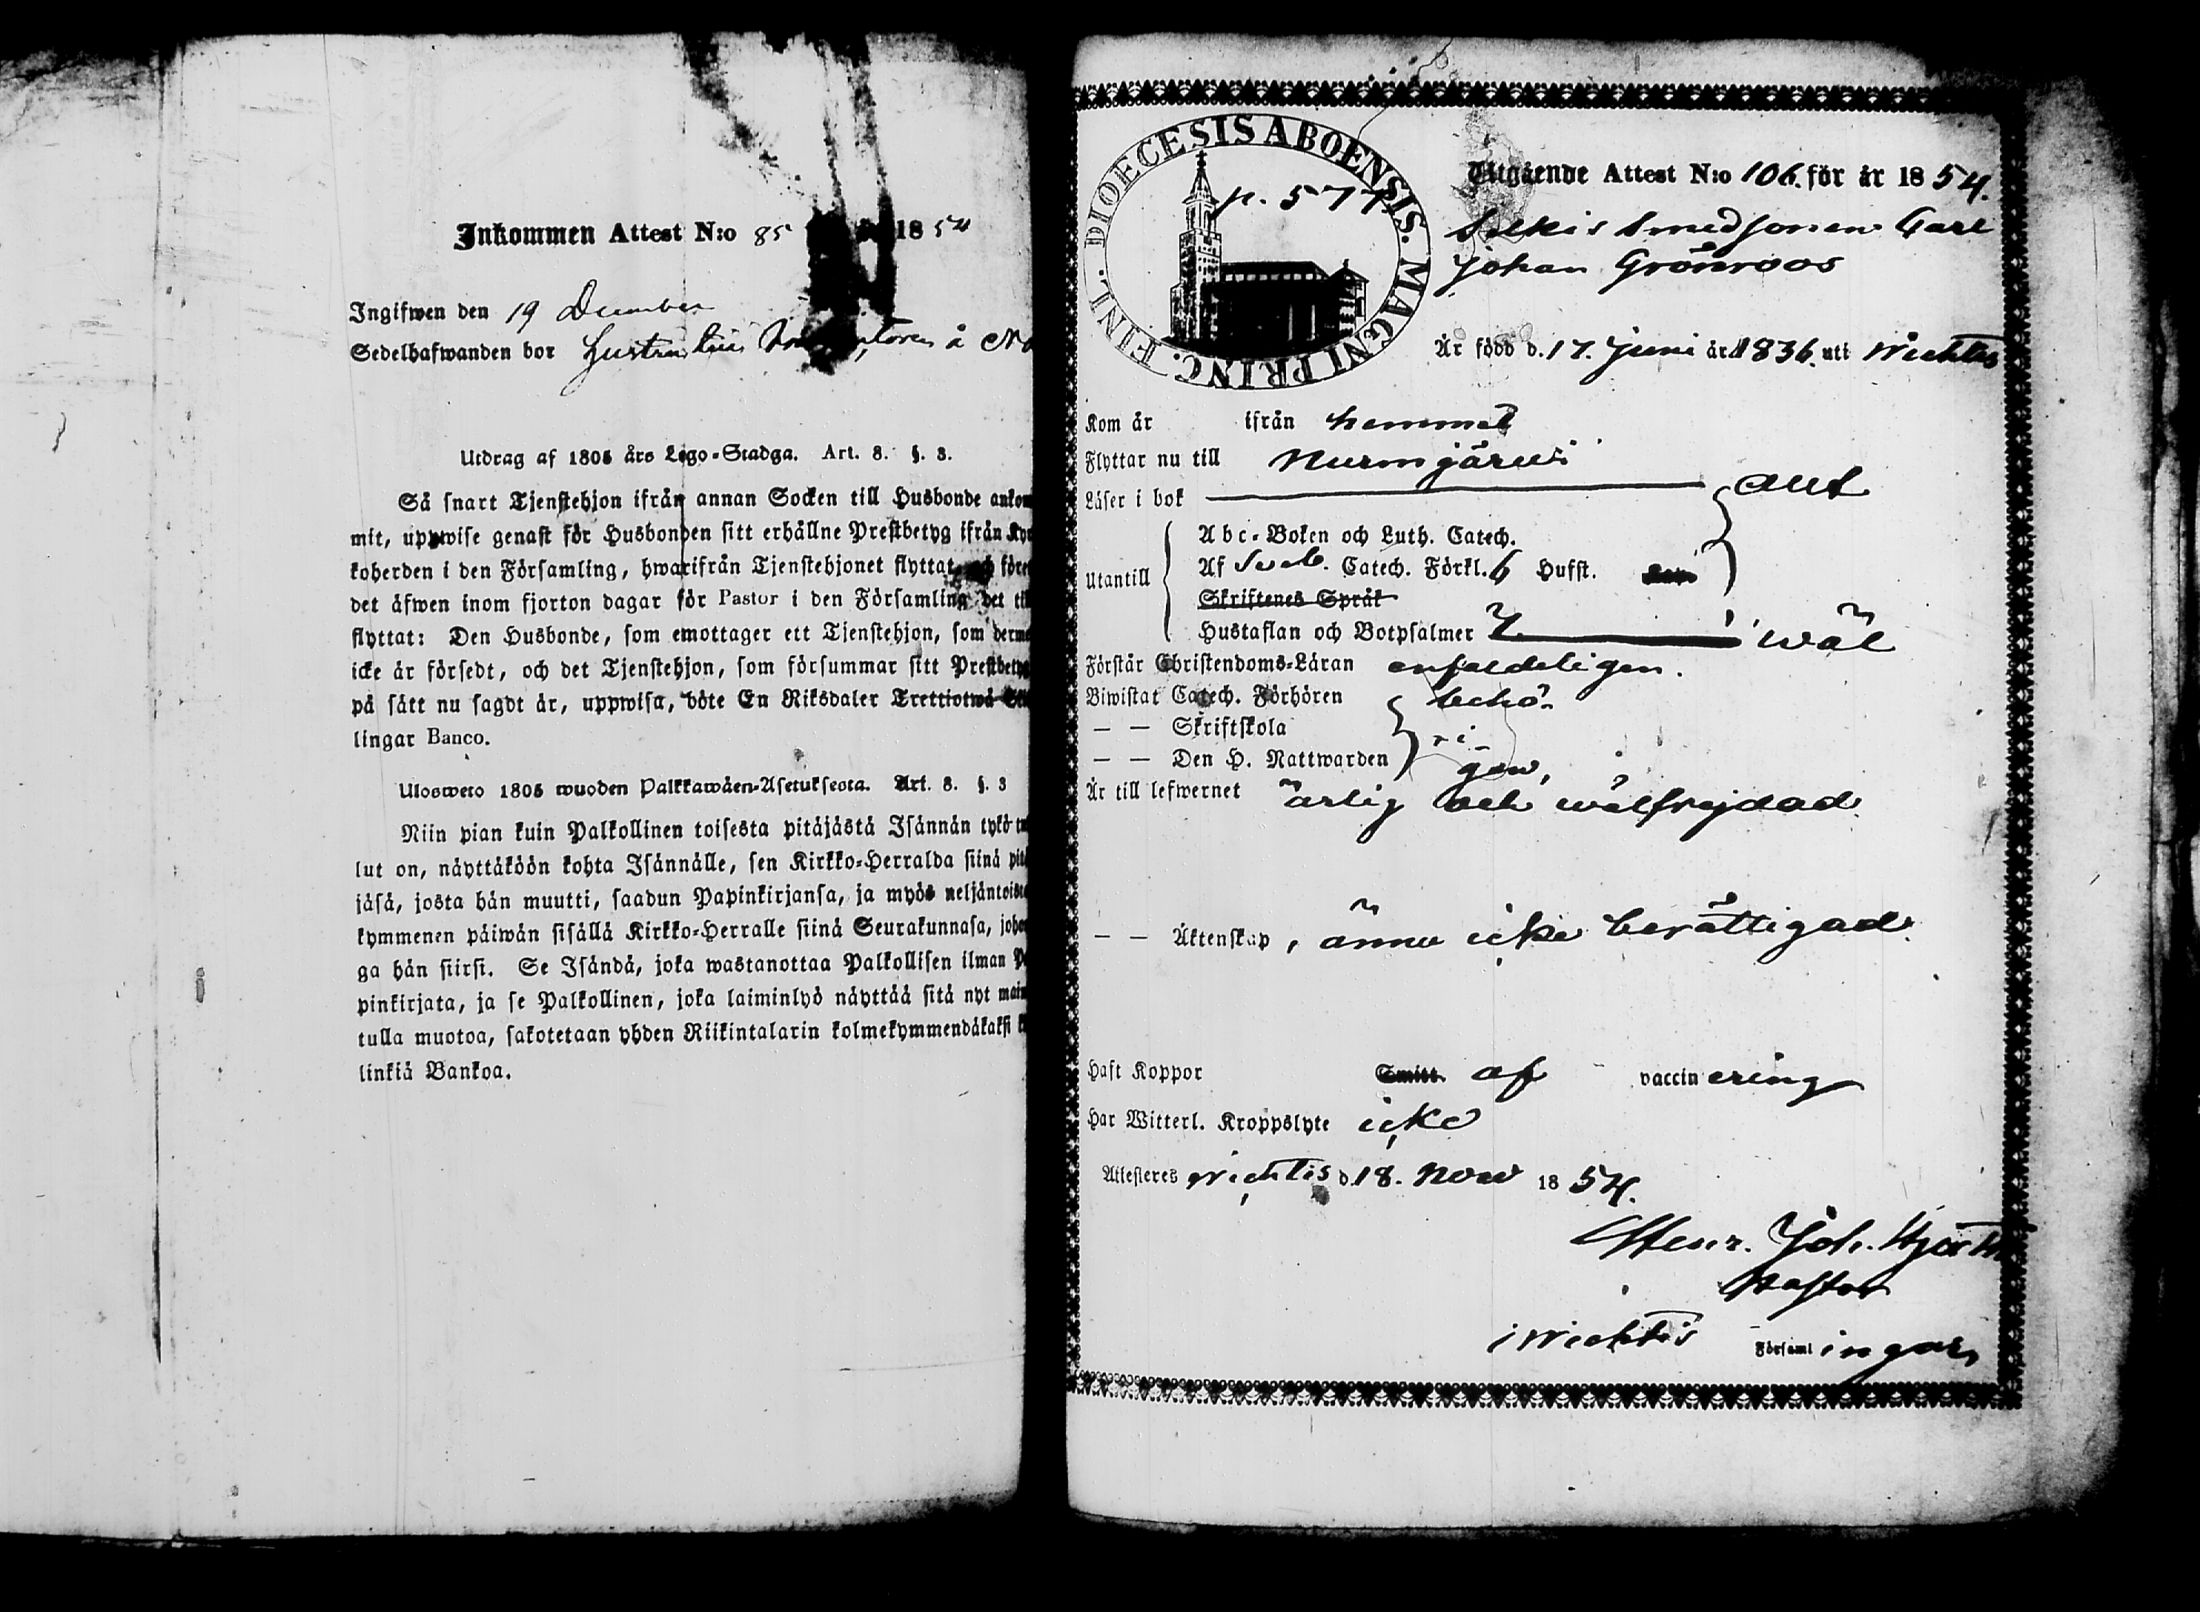 Inkommen Attest N:o 85 18 54
Ingifwen den 19 December
Sedelhafwanden bor hustru å
Utdrag af 1805 års Lego-Stadga. Art. 8. §. 3.
Så snart Tjenstehjon ifrån annan Socken till Husbonde ankom
mit, uppwise genast för Husbonden sitt erhållne Prestbetyg ifrån Kyr
koherden i den Församling, hwarifrån Tjenstehjonet flyttat, och före
det äfwen inom fjorton dagar för Pastor i den Församling det till
flyttat: Den Husbonde, som emottager ett Tjenstehjon, som derme
icke är försedt, och det Tjenstehjon, som försummar sitt Prestbetyg
på sätt nu sagdt är, uppwisa, böte En Riksdaler Trettiotwå Skil
lingar Banco.
Ulosweto 1805 wuoden Palkkawäen-Asetuksesta. Art. 8. §. 3
Niin pian kuin Palkollinen toisesta pitäjästä Isännän tykö tul
lut on, näyttäköön kohta Isännälle, sen Kirkko-Herralda siinä pitä
jäsä, josta hän muutti, saadun Papinkirjansa, ja myös neljäntoista
kymmenen päiwän sisällä Kirkko-Herralle siinä Seurakunnasa, johon
ga hän siirsi. Se Isändä, joka wastanottaa Palkollisen ilman Pa
pinkirjata, ja se Palkollinen, joka laiminlyö näyttää sitä nyt main
tulla muotoa, sakotetaan yhden Riikintalarin kolmekymmendäkaksi
linkiä Bankoa.
DIOECESIS ABOENSIS. MAGNI PRINC. FINL.
p. 577.
Utgående Attest N:o 106. för år 18 54.
Smedsonen Carl
Johan Grönroos
Är född d. 17. Juni år 1836. uti Wichtis
Kom år ifrån hemmet
Flyttar nu till Nurmijärvi
Läser i bok
Abc-Boken och Luth. Catech.
Utantill Af Sveb. Catech. Förkl. 6 Husst.
Skriftenes Språk
Hustaflan och Botpsalmer 7 wäl
Förstår Christendoms-Läran enfaldeligen.
Biwistat Catech. Förhören behö-
— — Skriftskola ri-
— — Den H. Nattwarden gen,
Är till lefwernet ärlig och wälfrejdad.
— — Äktenskap, ännu icke berättigad.
Haft Koppor Smitt. af vaccinering
Har Witterl. Kroppslyte icke
Attesteres Wichtis d. 18. Nov 18 54.
Henr. Joh.
Pastor
i Wichtis Församlingar,